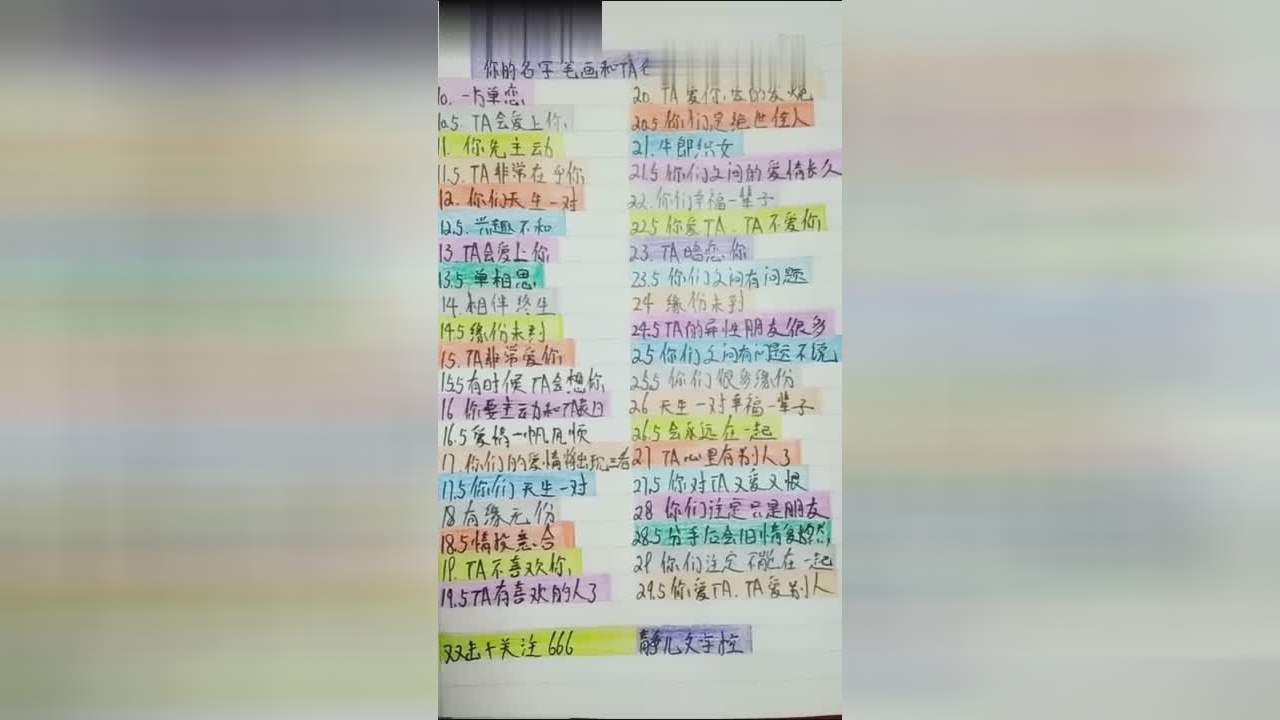 你的名字笔画和TA
10. 一方单恋
10.5. TA会爱上你
11. 你先主动
11.5. TA非常在乎你
12. 你们天生一对
12.5. 兴趣不和
13. TA会爱上你
13.5 单相思
14. 相伴终生
14.5 缘份未到
15. TA非常爱你
15.5 有时候TA会想你
16 你要主动和TA表白
16.5 爱情一帆风顺
17. 你们的爱情将出现三者
17.5 你们天生一对
18 有缘无份
18.5 情投意合
19. TA不喜欢你
19.5 TA有喜欢的人了
20. TA爱你,爱的发烧
20.5 你们是绝世佳人
21. 牛郎织女
21.5 你们之间的爱情长久
22. 你们幸福一辈子
22.5 你爱TA. TA不爱你
23. TA暗恋你
23.5 你们之间有问题
24 缘份未到
24.5 TA的异性朋友很多
25 你们之间有问题不说
25.5 你们很多缘份
26 天生一对幸福一辈子
26.5 会永远在一起
27 TA心里有别人了
27.5 你对TA又爱又恨
28 你们注定只是朋友
28.5 分手后会旧情复燃
29 你们注定不能在一起
29.5 你爱TA. TA爱别人
双击+关注666
静儿文字控